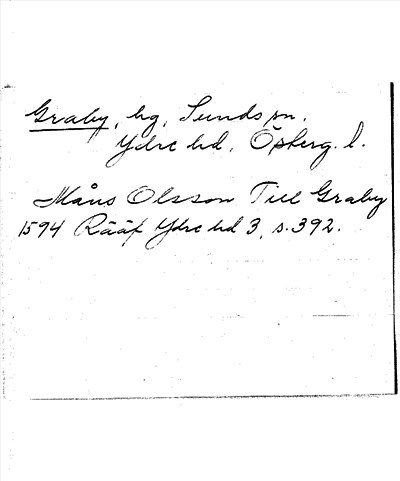 Graby, hg, Sunds sn.
Ydre hd, Östberg. l.
Måns Olsson Till Graby
1594 Rääf Ydre hd 3, s. 392.